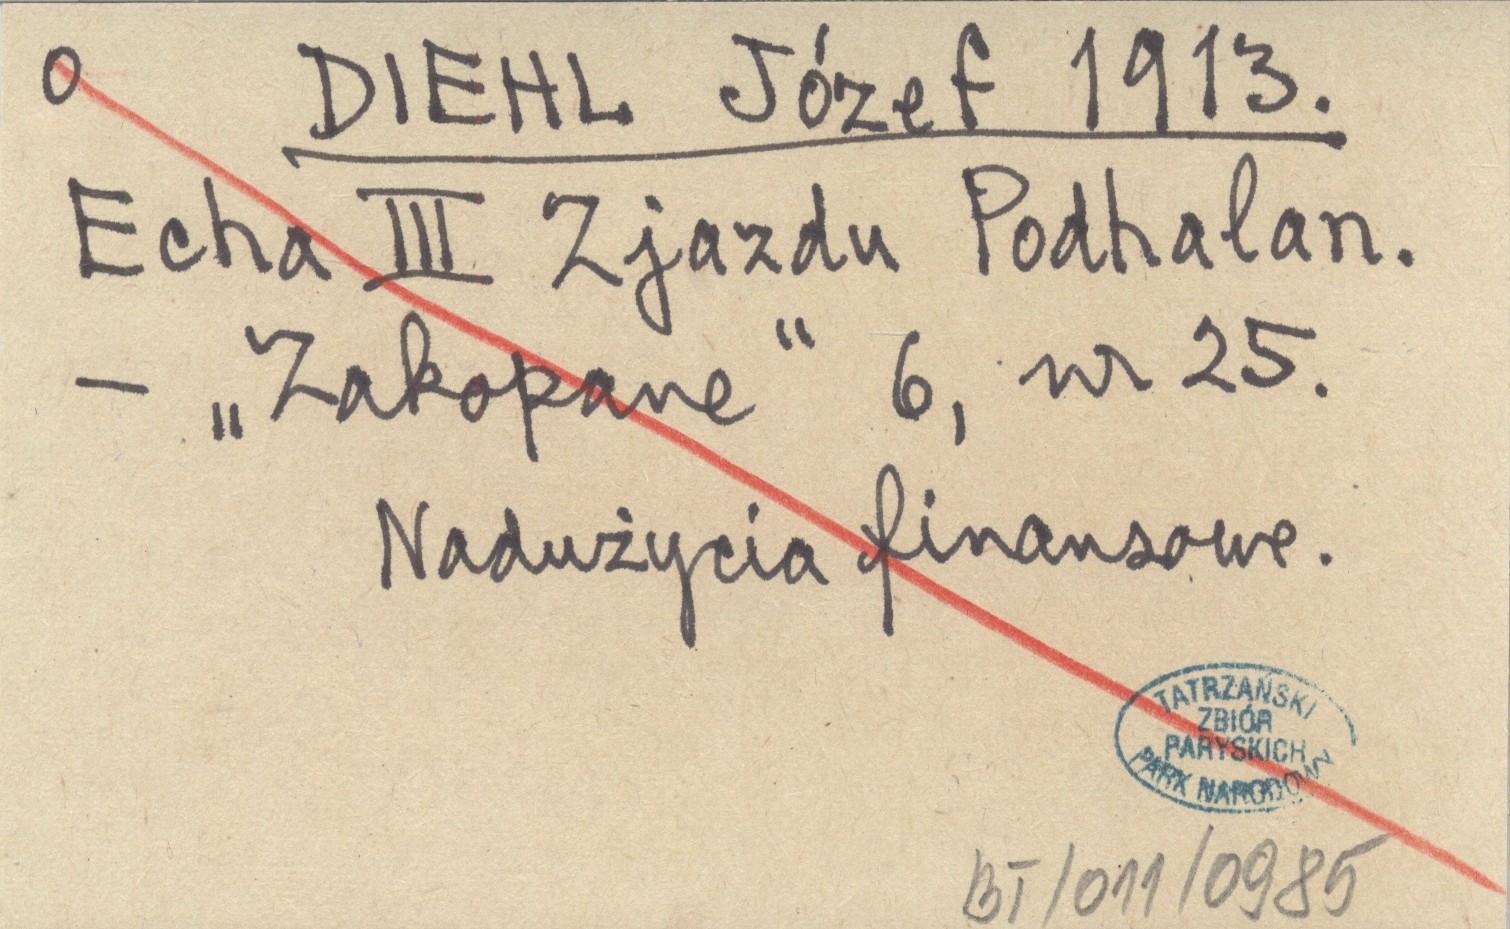 O DIEHL Józef 1913.
Echa III Zjazdu Podhalan.
– „Zakopane“ 6, nr 25.
Nadużycia finansowe.
TATRZAŃSKI
ZBIÓR
PARYSKICH
PARK NARODOWY
BT/011/0985